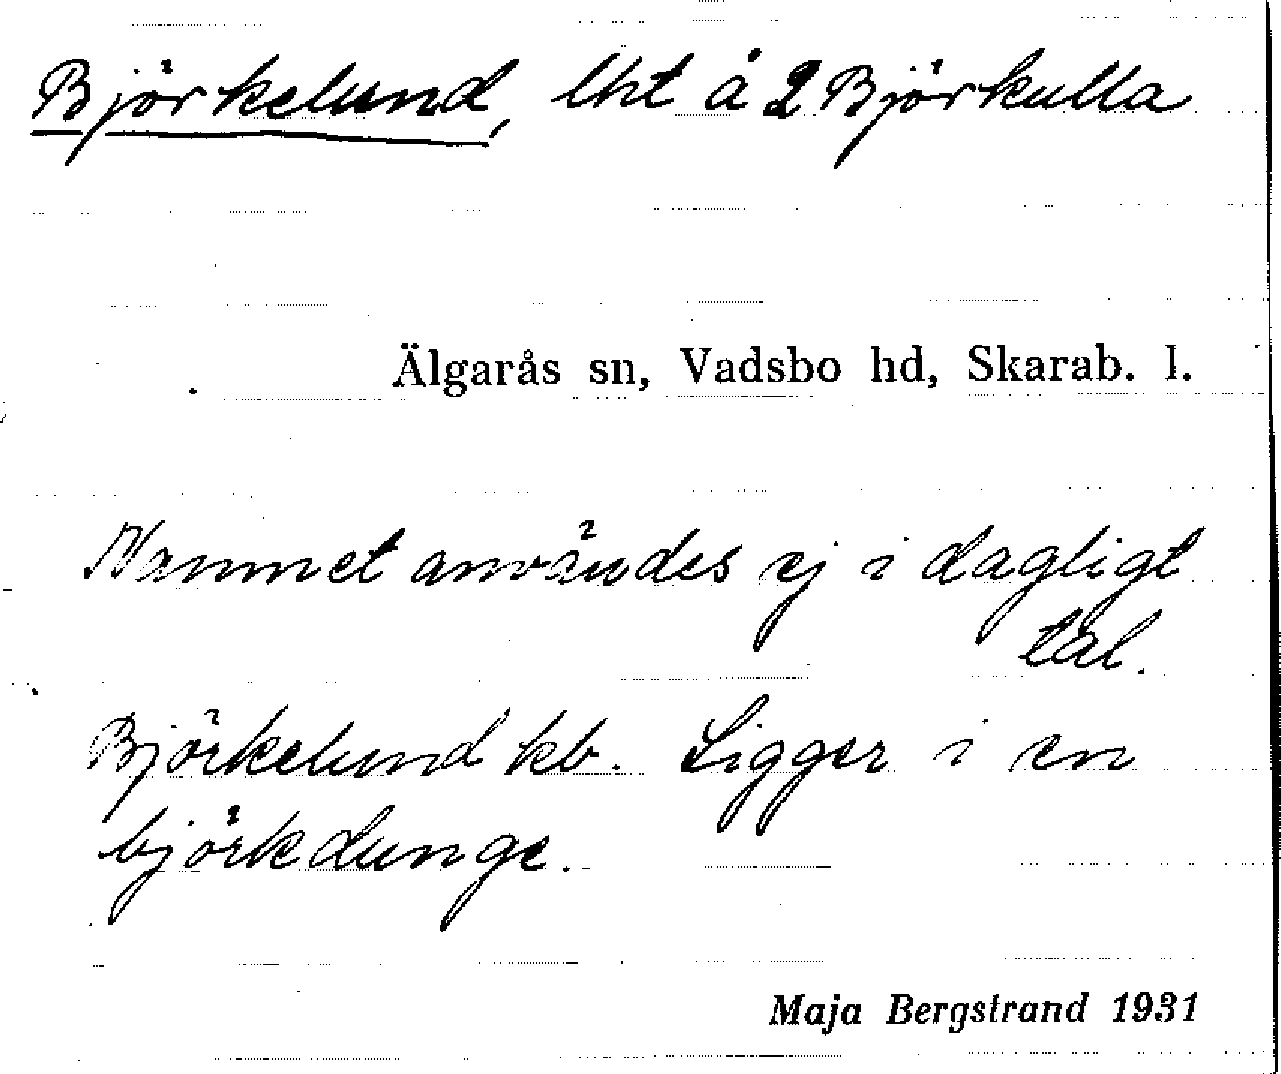 Björkelund, lht å 2 Björkulla
Älgarås sn, Vadsbo hd, Skarab. l.
Namnet användes ej i dagligt
tal.
Björkelund kb. Ligger i en
björkdunge.
Maja Bergstrand 1931